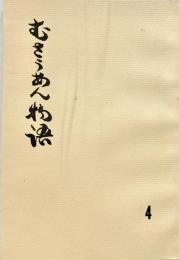 むさうあん物語
4